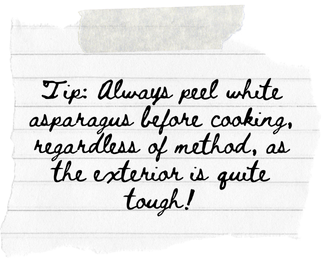 Tip: Always peel white
asparagus before cooking,
regardless of method, as
the exterior is quite
tough!